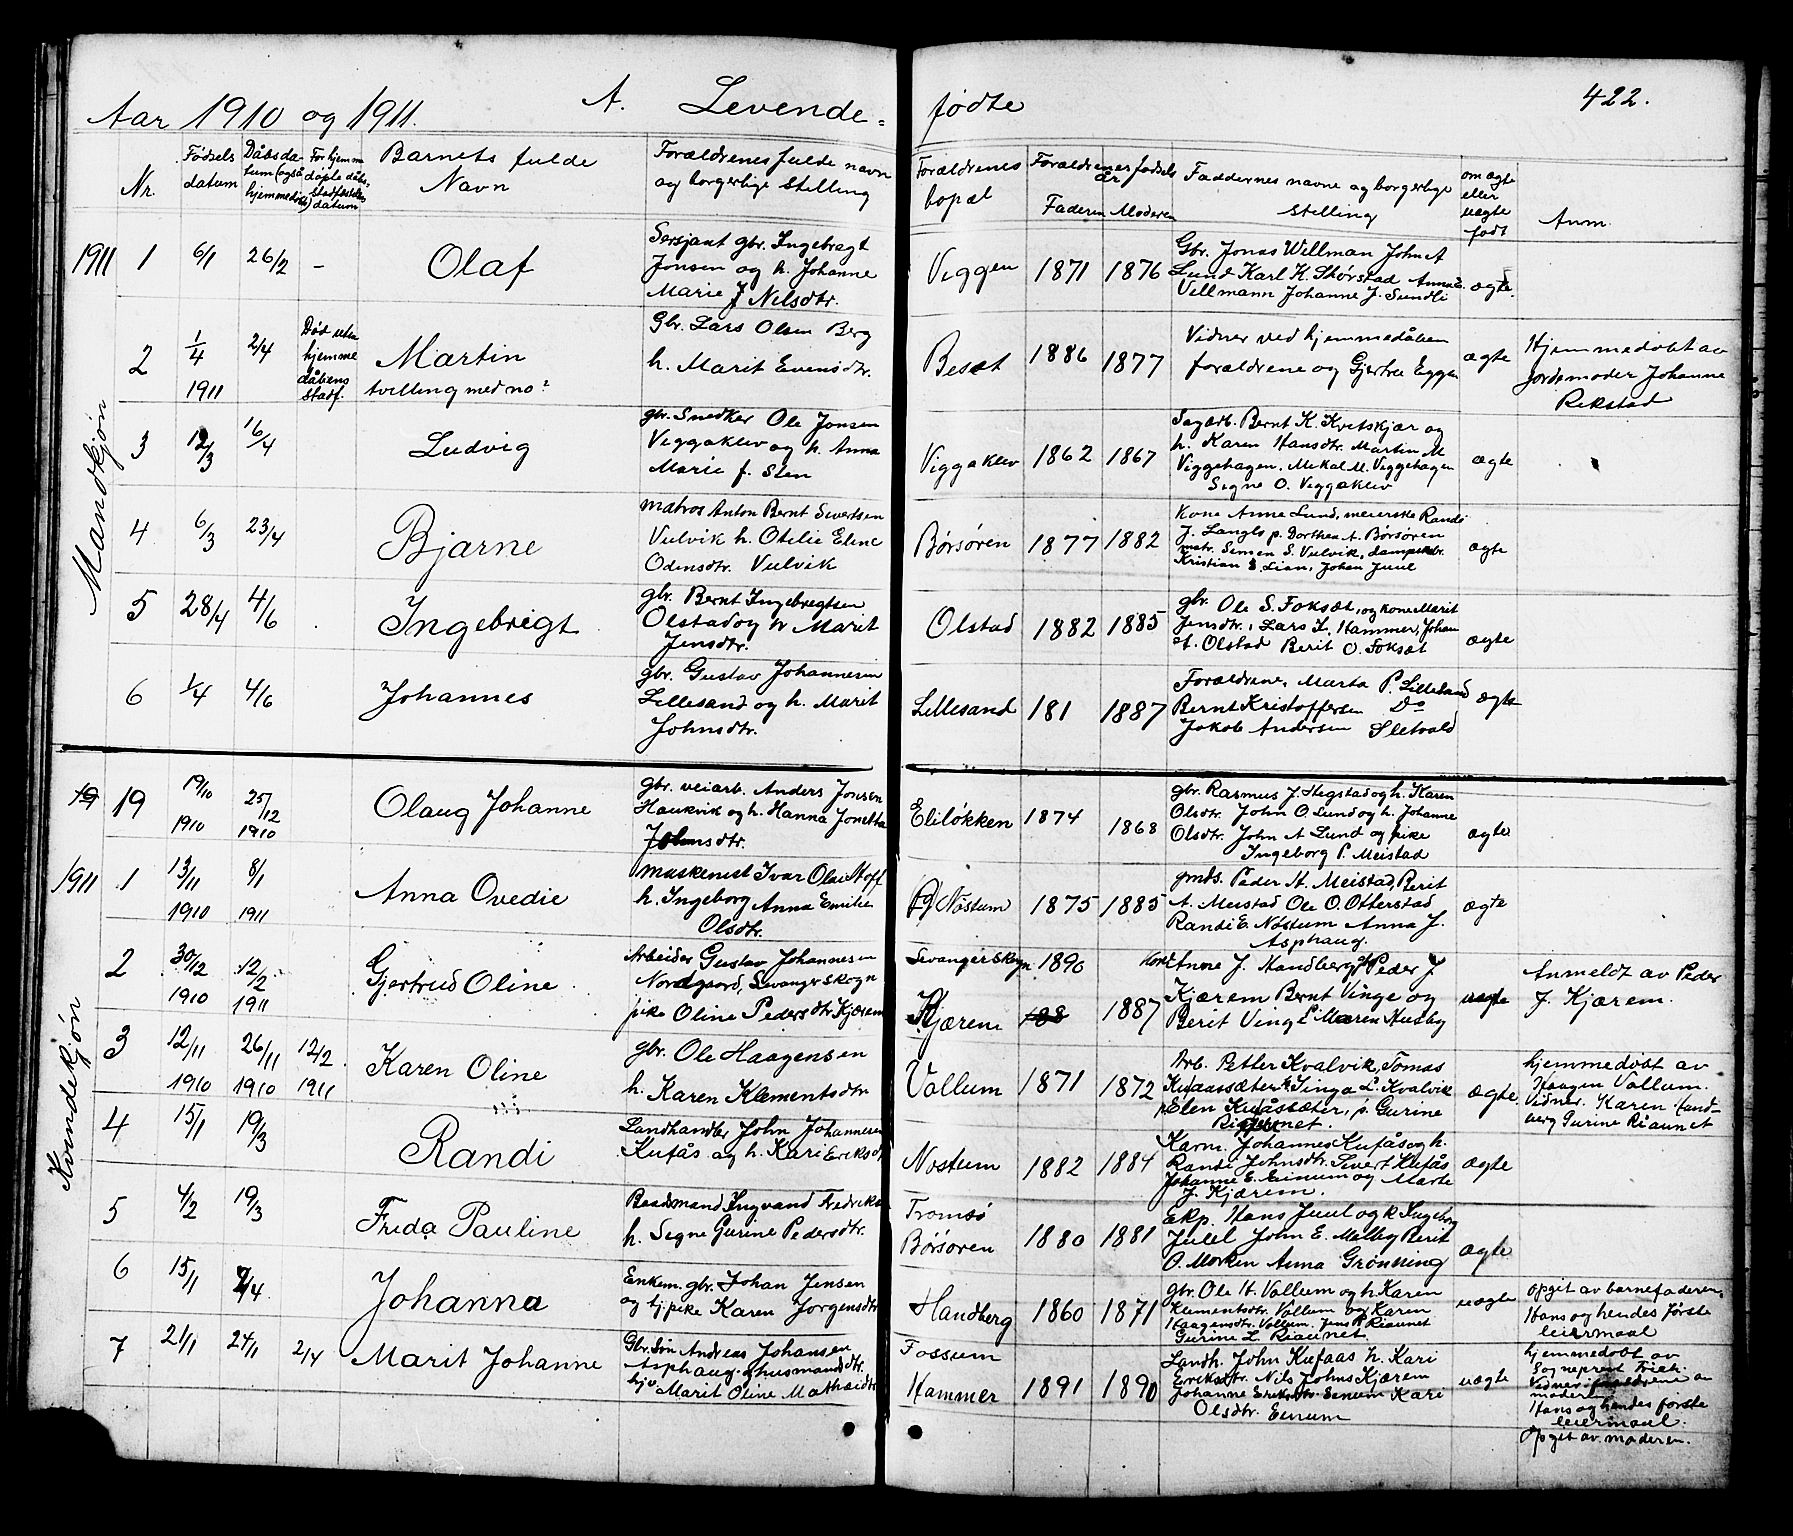 Aar 1910 og 1911. A. Levende= fødte 422.
Nr. Fødsels datum Dåbsdatum (også hjemmedøbt) For hjemmedøpte dåbs stadfæstelses datum Barnets fulde Navn Forældrenes fulde navn og borgerlige stilling Forældrenes bopæl Forældrenes fødselsår Faderen Moderen Faddernes navne og borgerlige stilling om ægte eller uægte født Anm.
Mandkjøn
1911 1 6/1 26/2 - Olaf
Sersjant gbr. Ingebragt
Jonsen og h. Johanne
Marie J Nilsdtr.
Viggen 1871 1876
Gbr. Jonas Willman John A
Lund Karl K. Skørstad Anna E.
Villmann Johanne J. Sundli
ægte.
2 1/4 1911 2/4
Død uten
hjemme
dåbens
stadf.
Martin
tvilling med no:
Gbr. Lars Olsen Berg
h. Marit Evensdtr.
Besæt 1886 1877
Vidner ved hjemmedåben
forældrene og Gjertru Eggen
ægte
Hjemmedøbt av
jordemoder Johanne
Rekstad
3 12/3 16/4 Ludvig
gbr. Snedker Ole Jonsen
Viggaklev og h. Anna
Marie f. Sten
Viggaklev 1862 1867
Sagarb. Bernt K. Kvetskjær og
h. Karen Hansdtr. Martin M
Viggehagen. Mekal M. Viggehagen
Signe O. Viggaklev
ægte
4 6/3 23/4 Bjarne
matros Anton Bernt Sivertsen
Vulvik h. Otelie Eline
Odinsdtr. Vulvik
Børsøren 1877 1882
Kone Anna Lund, meierske Randi
J. Langlo p. Dorthea A. Børsøren
matr. Simen S. Vulvik,
Kristian E. Lian, Johan Juul
ægte
5 28/4 4/6 Ingebrigt
gbr. Bernt Ingebregtsen
Olstad og h Marit
Jensdtr.
Olstad 1882 1885
gbr. Ole S. Foksæt, og kone Marit
Jensdtr. Lars I. Hammer, Johan
A. Olstad Berit O. Foksæt
ægte
6 1/4 4/6 Johannes
gbr. Gustav Johannesen
Lillesand og h. Marit
Johnsdtr.
Lillesand 181 1887
Forældrene, Marta P. Lillesand
Bernt Kristoffersen Do
Jakob Andersen Sletvold
ægte
Kvindekjøn
19 19 19/10 1910 25/12 1910 Olaug Johanne
gbr. veiarb. Anders Jonsen
Haukvik og h. Hanna Jonetta
Johnsdtr.
Eliløkken 1874 1868
gbr. Rasmus J. Hegstad og h. Karen
Olsdtr. John O. Lund og h. Johanne
Olsdtr. John A Lund og pike
Ingeborg P. Meistad
ægte
1911 1 13/11 1910 8/1 1911 Anna Ovedie
maskenist Ivar Olai Hoff
h. Ingeborg Anna Emilie
Olsdtr.
Nøstum 1875 1885
gmds. Peder H. Meistad, Berit
A. Meistad Ole O. Otterstad
Randi E. Nøstum Anna J.
Asphaug.
ægte
2 30/12 1910 12/2 1911 Gjertrud Oline
Arbeider Gustav Johannesen
Nordgaard, Levangerskogn
pike Oline Pedersdtr Kjærem
Levangerskogn 1890
Kjærem 188 1887
Kone Anne J. Handberg Peder J
Kjærem Bernt Vinge og
Berit Vinge Maren Husby
uægte
Anmeldt av Peder
J. Kjærem.
3 12/11 1910 26/11 1910 12/2 1911 Karen Oline
gbr. Ole Haagensen
h. Karen Klementsdtr
Vollum 1871 1872
Arb. Petter Kvalvik, Tomas
Kufaassæter Singa L. Kvalvik
Elen Kufåssæter, p. Gurine
Riaunet.
ægte.
hjemmedøbt av
Haagen Vollum.
Vidner. Karen Handberg
Gurine Riaunet
4 15/1 19/3 Randi
Landhandler John Johannesen
Kufås og h. Kari Eriksdtr
Nostum 1882 1884
Karm. Johannes Kufås og h.
Randi Johnsdtr. Sivert Kufås
Johanne E. Einum og Marte
J. Kjærem.
ægte
5 4/2 19/3 Frida Pauline
Baadsmand Ingvand Fredriksen
h. Signe Gurine Pedersdtr.
Tromsø
Børsøren 1880 1881
Exp. Hans Juul og k Ingeborg
Juul John E. Melby Berit
O. Morken Anna Grønning
ægte
6 15/1 9/4. Johanna
Enkem. gbr. Johan Jensen
og tj. pike Karen Jorgensdtr
Handberg 1860 1871
gbr. Ole H. Vollum og h Karen
Klementsdtr. Vollum og Karen
Haagensdtr. Vollum. Jens P. Riaunet
Gurine L. Riaunet.
uægte
opgit av barnefaderen,
Hans og hendes første
leiermaal
7 21/1 24/1 2/4 Marit Johanne
Gbr. søn Andreas Johansen
Asphaug. ghusmandsdtr.
hjv Marit Oline Mathisdtr
Fossum
Hammer 1891 1890
Landh. John Kufaas h. Kari
Eriksdtr. Nils Johns Kjærem
Johanne Eriksdtr. Einum Kari
Olsdtr. Einum
uægte
hjemmedøbt av
Sogneprest
Vidner forældrene av
moderen
Hans og hendes første
leiermaal.
Opgit av moderen.